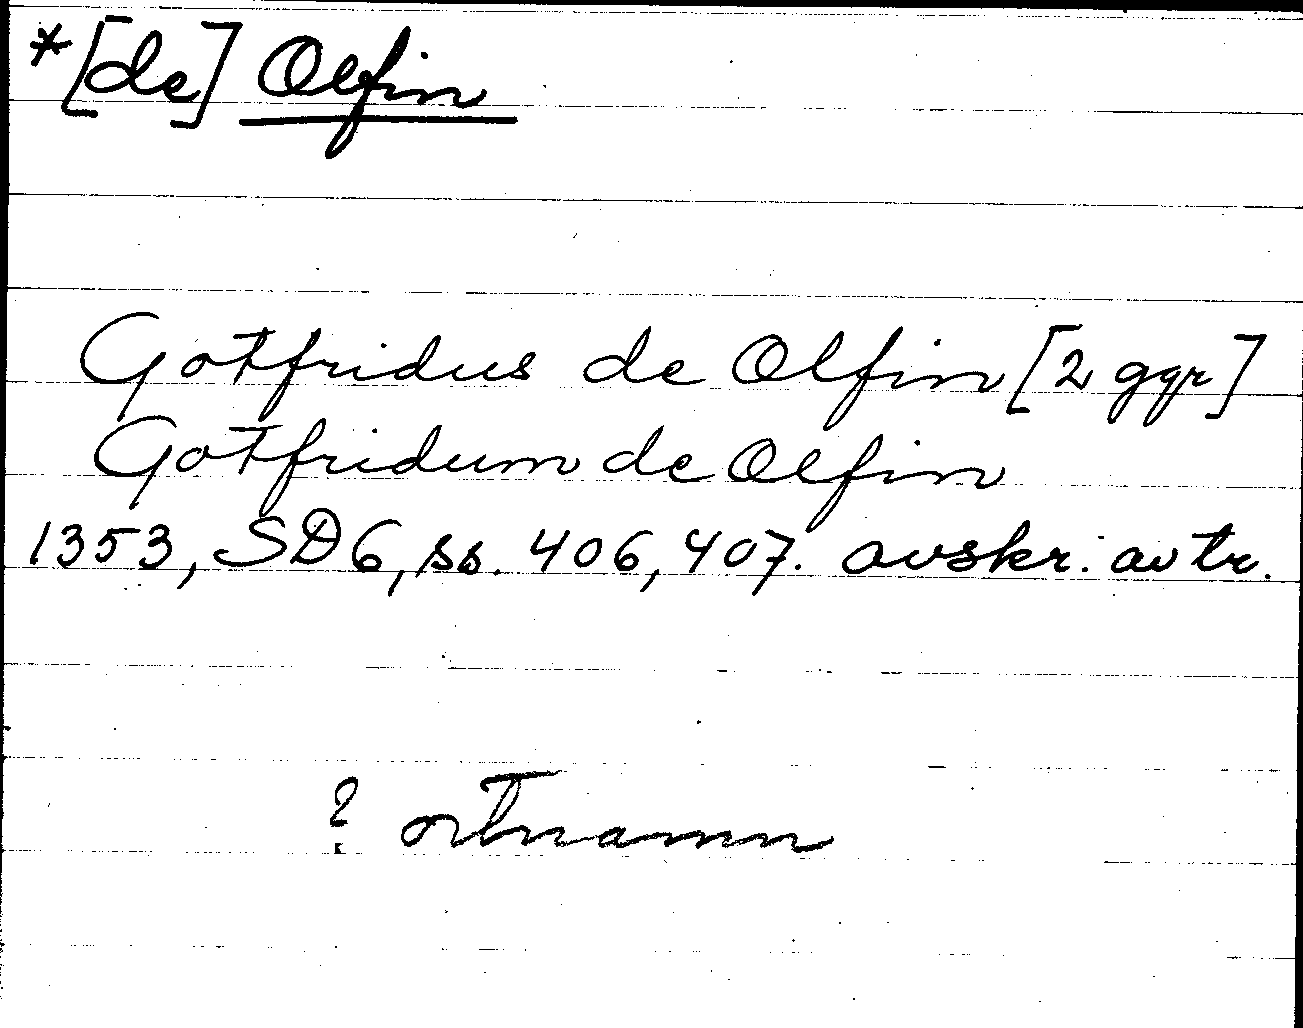 *[de] Olfin
Gotfridus de Olfin [2 ggr]
Gotfridum de Olfin
1353, SD6, ss. 406, 407. avskr. av tr.
? ortnamn